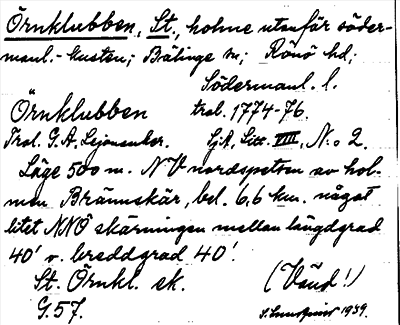 Örnklubben, St., holme utanför söder-
manl.-kusten; Bälinge sn; Rönö hd;
Södermanl. l.
Örnklubben trol. 1774-76.
Trol. G.A. Lejonancker. SjA, Litt. VIII, N:o 2.
Läge 500 m. NV nordspetsen av hol-
men Brännskär, bel. 6,6 km. något
litet NNÖ skärningen mellan längdgrad
40' o. breddgrad 40'.
St. Örnkl. sk. (Vänd!)
G. 57. S. Lundqvist 1939.